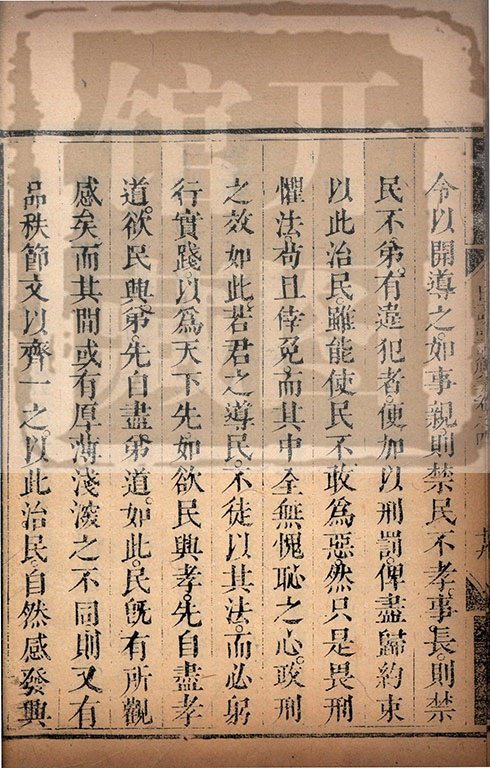 令以開導之。如事親、則禁民不孝。事長、則禁
民不弟。有違犯者、便加以刑罰。俾盡歸約束
以此治民。雖能使民不敢為惡。然只是畏刑
懼法。苟且倖免。而其中全無愧恥之心。政刑
之效如此。若君之導民。不徒以其法。而必躬
行實踐。以為天下先。如欲民興孝。先自盡孝
道。欲民興弟。先自盡弟道。如此。民旣有所觀
感矣。而其間或有厚薄淺深之不同。則又有
品秩節文以齊一之。以此治民。自然感發興